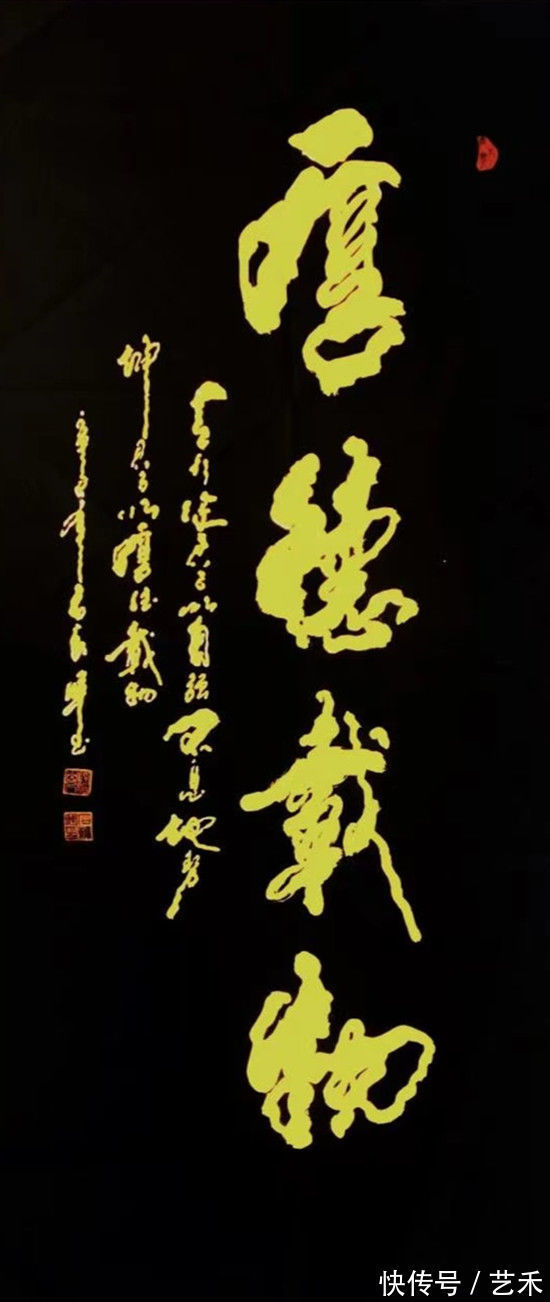 厚德载物
天行健君子以自强不息地势
坤君子以厚德载物
辛丑年
书
快传号 / 艺禾